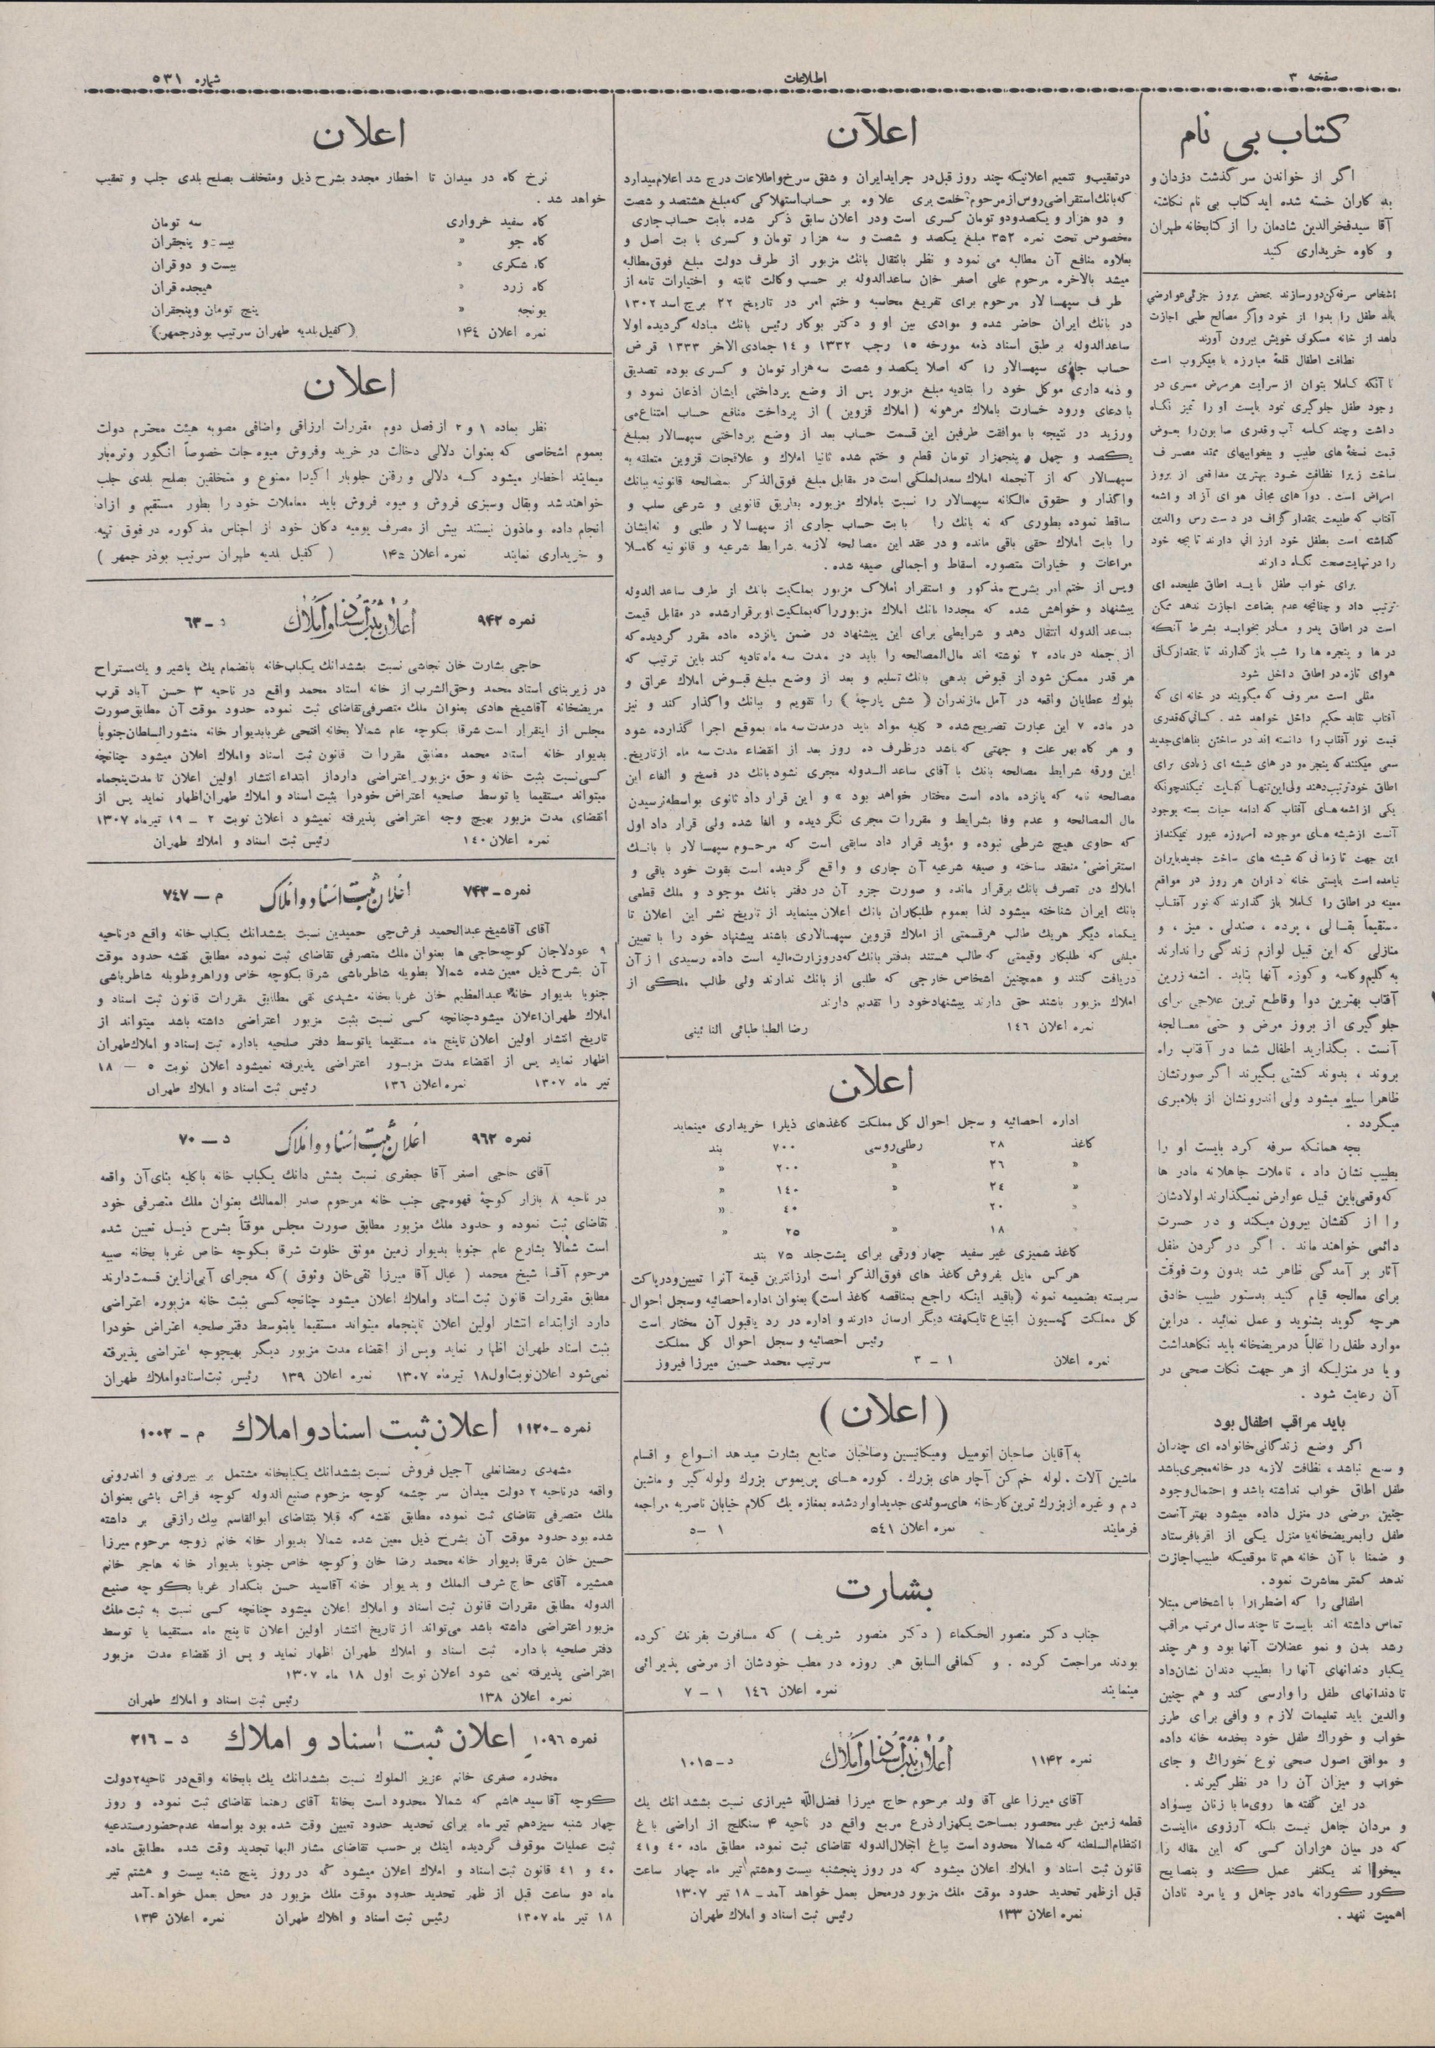 صفحه ۳
اطلاعات
شماره ۵۳۱
کتاب بی نام
اگر از خواندن سرگذشت دزدان و
به کاران خسته شده اید کتاب بی نام نگاشته
آقا سیدفخرالدین شادمان را از کتابخانه طهران
و کاوه خریداری کنید
اشخاص سرفه کن دور سازند بمحض بروز جزئی عوارضی
طفل را بدوا از خود واگر مصالح طبی اجازت
داهد از خانه مسکونی خویش بیرون آورند
نظافت اطفال قلعهٔ مبارزه با میکروب است
تا آنکه کاملا بتوان از سرایت هر مرض مسری در
وجود طفل جلوگیری نمود بایست او را تمیز نگاه
داشت و چند کاسه آب و قدری صابون را بعوض
قیمت نسخهٔ های طبیب و بیخوابیهای ممتد مصرف
ساخت زیرا نظافت خود بهترین مدافعی از بروز
امراض است . دواهای مجانی هوای آزاد و اشعه
آفتاب که طبیعت بمقدار گزاف در دست رس والدین
گذاشته است بطفل خود ارزانی دارند تا بچه خود
را در نهایت صحت نگاه دارند
برای خواب طفل باید اطاق علیحده ای
ترتیب داد و چنانچه عدم بضاعت اجازت ندهد ممکن
است در اطاق پدر و مادر بخوابید بشرط آنکه
درها و پنجره ها را شب باز گذارند تا بمقدار کافی
هوای تازه در اطاق داخل شود
مثلی است معروف که میگویند در خانه ای که
آفتاب نتابد حکیم داخل خواهد شد . کسانی که قدری
قیمت نور آفتاب را دانسته اند در ساختن بناهای جدید
سعی میکنند که پنجره و درهای شیشه ای زیادی برای
اطاق خود ترتیب دهند ولی این تنها کفایت نمیکند چونکه
یکی از اشعه های آفتاب که ادامه حیات بسته بوجود
آنست از شیشه های موجوده امروزه عبور نمیکند از
این جهت تا زمانی که شیشه های ساخت جدید بایران
نیامده است بایستی خانه داران هر روز در مواقع
معینه در اطاق را کاملا باز گذارند که نور آفتاب
مستقیماً بقالی ، پرده ، صندلی ، میز ، و
منازلی که این قبیل لوازم زندگی را ندارند
به گلیم و کاسه و کوزه آنها بتابد . اشعه زرین
آفتاب بهترین دوا وقاطع ترین علاجی برای
جلوگیری از بروز مرض و حتی معالجه
آنست . بگذارید اطفال شما در آفتاب راه
بروند ، بدوند کشتی بگیرند اگر صورتشان
ظاهرا سیاه میشود ولی اندرونشان از بلا مبری
میگردد .
بچه همانکه سرفه کرد بایست او را
بطبیب نشان داد ، تاملات جاهلانه مادرها
که وقعی باین قبیل عوارض نمیگذارند اولادشان
را از کفشان بیرون میکند و در حسرت
دائمی خواهند ماند . اگر در گردن طفل
آثار بر آمدگی ظاهر شد بدون وقت
برای معالجه قیام کنید بدستور طبیب حاذق
هرچه گوید بشنوید و عمل نمائید . در این
موارد طفل را غالباً در مریضخانه باید نگاهداشت
و یا در منزلیکه از هر جهت نکات صحی در
آن رعایت شود .
باید مراقب اطفال بود
اگر وضع زندگانی خانواده ای چندان
وسیع نباشد ، نظافت لازمه در خانه مجری باشد
طفل اطاق خواب نداشته باشد و احتمال وجود
چنین مرضی در منزل داده میشود بهتر آنست
طفل را بمریضخانه یا منزل یکی از اقربا فرستاد
و ضمنا با آن خانه هم تا موقعیکه طبیب اجازت
ندهد کمتر معاشرت نمود .
اطفالی را که اضطرارا با اشخاص مبتلا
تماس داشته اند بایست تا چند سال مرتب مراقب
رشد بدن و نمو عضلات آنها بود و هر چند
یکبار دندانهای آنها را بطبیب دندان نشان داد
تا دندانهای طفل را وارسی کند و هم چنین
والدین باید تعلیمات لازم و وافی برای طرز
خواب و خوراک طفل خود بخدمه خانه داده
و موافق اصول صحی نوع خوراک و جای
خواب و میزان آن را در نظر گیرند .
در این گفته ها روی ما با زنان بیسواد
و مردان جاهل نیست بلکه آرزوی ما اینست
که در میان هزاران کسی که این مقاله را
میخوانند یکنفر عمل کند و بنصایح
کورکورانه مادر جاهل و یا مرد نادان
اهمیت ننهد .
اعلان
در تعقیب و تتمیم اعلانیکه چند روز قبل در جراید ایران و شفق سرخ و اطلاعات درج شد اعلام میدارد
که بانک استقراضی روس از مرحوم خلعت بری علاوه بر حساب استهلاکی که مبلغ هشتصد و شصت
و دو هزار و یکصد و دو تومان کسری است و در اعلان سابق ذکر شده بابت حساب جاری
مخصوص تحت نمره ۳۵۲ مبلغ یکصد و شصت و سه هزار تومان و کسری با بت اصل و
بعلاوه منافع آن مطالبه می نمود و نظر بانتقال بانک مزبور از طرف دولت مبلغ فوق مطالبه
میشد بالاخره مرحوم علی اصغر خان ساعدالدوله بر حسب وکالت ثابته و اختیارات تامه از
طرف سپهسالار مرحوم برای تفریغ محاسبه و ختم امر در تاریخ ۲۲ برج اسد ۱۳۰۲
در بانک ایران حاضر شده و موادی بین او و دکتر بوکار رئیس بانک مبادله گردیده اولا
ساعدالدوله بر طبق اسناد ذمه مورخه ۱۵ رجب ۱۳۳۲ و ۱٤ جمادی الاخر ۱۳۳۳ قرض
حساب جاری سپهسالار را که اصلا یکصد و شصت سه هزار تومان و کسری بوده تصدیق
و ذمه داری موکل خود را بتادیه مبلغ مزبور پس از وضع پرداختی ایشان اذعان نمود و
با دعای ورود خسارت باملاک مرهونه ( املاک قزوین ) از پرداخت منافع حساب امتناع می
ورزید در نتیجه با موافقت طرفین این قسمت حساب بعد از وضع پرداختی سپهسالار بمبلغ
یکصد و چهل و پنجهزار تومان قطع و ختم شده ثانیا املاک و علاقجات قزوین متعلقه به
سپهسالار که از آنجمله املاک سعدالملکی است در مقابل مبلغ فوق الذکر بمصالحه قانونیه ببانک
واگذار و حقوق مالکانه سپهسالار را نسبت باملاک مزبوره بطریق قانونی و شرعی سلب و
ساقط نموده بطوری که نه بانک را بابت حساب جاری از سپهسالار طلبی و نه ایشان
را بابت املاک حقی باقی مانده و در عقد این مصالحه لازمه شرایط شرعیه و قانونیه کاملا
مراعات و خیارات متصوره اسقاط و اجمالی صیغه شده .
وپس از ختم امر بشرح مذکور و استقرار املاک مزبور بملکیت بانک از طرف ساعدالدوله
پیشنهاد و خواهش شده که مجددا بانک املاک مزبور را که بملکیت او برقرار شده در مقابل قیمت
بساعدالدوله انتقال دهد و شرایطی برای این پیشنهاد در ضمن یانزده ماده مقرر گردیده که
از جمله در ماده ۲ نوشته اند مال المصالحه را باید در مدت سه ماه تادیه کند باین ترتیب که
هر قدر ممکن شود از قبوض بدهی بانک تسلیم و بعد از وضع مبلغ قبوض املاک عراق و
بلوک عطایان واقعه در آمل مازندران ( شش پارچه ) را تقویم و ببانک واگذار کند و نیز
در ماده ۷ این عبارت تصریح شده « کلیه مواد باید در مدت سه ماه بموقع اجرا گذارده شود
و هر گاه بهر علت و جهتی که باشد در ظرف ده روز بعد از انقضاء مدت سه ماه از تاریخ
این ورقه شرایط مصالحه بانک با آقای ساعدالدوله مجری نشود بانک در فسخ و الغاء این
مصالحه نامه که پانزده ماده است مختار خواهد بود » و این قرار داد ثانوی بواسطه نرسیدن
مال المصالحه و عدم وفا بشرایط و مقررات مجری نگردیده و الغا شده ولی قرار داد اول
که حاوی هیچ شرطی نبوده و مؤید قرار داد سابقی است که مرحوم سپهسالار با بانک
استقراضی منعقد ساخته و صیغه شرعیه آن جاری و واقع گردیده است بقوت خود باقی و
املاک در تصرف بانک برقرار مانده و صورت جزو آن در دفتر بانک موجود و ملک قطعی
بانک ایران شناخته میشود لذا بعموم طلبکاران بانک اعلان مینماید از تاریخ نشر این اعلان تا
یکماه دیگر هریک طالب هر قسمتی از املاک قزوین سپهسالاری باشند پیشنهاد خود را با تعیین
مبلغی که طلبکار وقیمتی که طالب هستند بدفتر بانک که در وزارت مالیه است داده رسیدی از آن
دریافت کنند و همچنین اشخاص خارجی که طلبی از بانک ندارند ولی طالب ملکی از
املاک مزبور باشند حق دارند پیشنهاد خود را تقدیم دارند
نمره اعلان ۱٤٦ رضا الطباطبائی النائینی
اعلان
اداره احصائیه و سجل احوال کل مملکت کاغذهای ذیلرا خریداری مینماید
کاغذ ۲۸ رطلی روسی ۷۰۰ بند
« ۲٦ « ۲۰۰ «
« ۲٤ « ۱٤۰ «
« ۲۰ ٤۰ «
« ۱۸ « ۲۵ «
کاغذ شمیزی غیر سفید چهار ورقی برای پشت جلد ۷۵ بند
هر کس مایل بفروش کاغذ های فوق الذکر است ارزانترین قیمة آنرا تعیین و در پاکت
سربسته بضمیمه نمونه (باقید اینکه راجع بمناقصه کاغذ است) بعنوان اداره احصائیه وسجل احوال
کل مملکت کمسیون ابتیاع تا یکهفته دیگر ارسال دارند و اداره در رد یا قبول آن مختار است
رئیس احصائیه و سجل احوال کل مملکت
نمره اعلان ۱ - ۳ سرتیپ محمد حسین میرزا فیروز
(اعلان)
به آقایان صاحبان اتومبیل ومیکانیسین وصاحبان صنایع بشارت میدهد انواع و اقسام
ماشین آلات . لوله خم کن آچار های بزرگ . کوره های پریموس بزرگ ولوله گیر و ماشین
دم و غیره از بزرگ ترین کارخانه های سوئدی جدیدا وارد شده بمغازه یک کلام خیابان ناصریه مراجعه
فرمایند نمره اعلان ۵٤۱ ۱ -۵
بشارت
جناب دکتر منصور الحکماء ( دکتر منصور شریف ) که مسافرت بفرنک کرده
بودند مراجعت کرده . و کمافی السابق هر روزه در مطب خودشان از مرضی پذیرائی
مینمایند نمره اعلان ۱٤٦ ۱ - ۷
نمره ۱۱۴۲ اعلان ثبت اسناد و املاک د - ۱۰۱۵
آقای میرزا علی آقا ولد مرحوم حاج میرزا فضل‌الله شیرازی نسبت بششدانک یک
قطعه زمین غیر محصور بمساحت یکهزار ذرع مربع واقع در ناحیه ۴ سنگلج از اراضی باغ
انتظام السلطنه که شمالا محدود است بباغ اجلال الدوله تقاضای ثبت نموده مطابق ماده ۴۰ و ۴۱
قانون ثبت اسناد و املاک اعلان میشود که در روز پنجشنبه بیست وهشتم تیر ماه چهار ساعت
قبل از ظهر تحدید حدود موقت ملک مزبور در محل بعمل خواهد آمد - ۱۸ تیر ۱۳۰۷
نمره اعلان ۱۳۳ رئیس ثبت اسناد و املاک طهران
اعلان
نرخ کاه در میدان تا اخطار مجدد بشرح ذیل ومتخلف بصلح بلدی جلب و تعقیب
خواهد شد .
کاه سفید خرواری سه تومان
کاه جو « بیست و پنجقران
کاه شکری « بیست و دو قران
کاه زرد « هیجده قران
یونجه « پنج تومان وپنجقران
نمره اعلان ۱۴۴ (کفیل بلدیه طهران سرتیپ بوذرجمهر)
اعلان
نظر بماده ۱ و ۲ از فصل دوم مقررات ارزاقی واضافی مصوبه هیئت محترم دولت
بعموم اشخاصی که بعنوان دلالی دخالت در خرید وفروش میوه جات خصوصاً انگور وتره بار
مینمایند اخطار میشود که دلالی و رفتن جلوبار اکیدا ممنوع و متخلفین بصلح بلدی جلب
خواهند شد وبقال وسبزی فروش و میوه فروش باید معاملات خود را بطور مستقیم و ازاد
انجام داده و ماذون نیستند بیش از مصرف یومیه دکان خود از اجناس مذکوره در فوق تهیه
و خریداری نمایند نمره اعلان ۱۴۵ ( کفیل بلدیه طهران سرتیپ بوذرجمهر )
نمره ۹۴۲ اعلان ثبت اسناد و املاک د - ۶۳
حاجی بشارت خان نجاشی نسبت بششدانک یکباب خانه بانضمام یک پاشیر و یک مستراح
در زیر بنای استاد محمد وحق الشرب از خانه استاد محمد واقع در ناحیه ۳ حسن آباد قرب
مریضخانه آقاشیخ هادی بعنوان ملک متصرفی تقاضای ثبت نموده حدود موقت آن مطابق صورت
مجلس از اینقرار است شرقا بکوچه عام شمالا بخانه افتحی غربا بدیوار خانه منشور السلطان جنوباً
بدیوار خانه استاد محمد مطابق مقررات قانون ثبت اسناد واملاک اعلان میشود چنانچه
کسی نسبت بثبت خانه و حق مزبور اعتراضی دارد از ابتداء انتشار اولین اعلان تا مدت پنجماه
میتواند مستقیما یا توسط صلحیه اعتراض خودرا بثبت اسناد و املاک طهران اظهار نماید پس از
انقضای مدت مزبور بهیچ وجه اعتراضی پذیرفته نمیشود اعلان نوبت ۲ - ۱۹ تیر ماه ۱۳۰۷
نمره اعلان ۱۴۰ رئیس ثبت اسناد و املاک طهران
نمره - ۷۴۳ اعلان ثبت اسناد و املاک م - ۷۴۷
آقای آقاشیخ عبدالحمید فرش چی حمیدین نسبت بششدانک یکباب خانه واقع در ناحیه
۹ عودلاجان کوچه حاجی ها بعنوان ملک متصرفی تقاضای ثبت نموده مطابق نقشه حدود موقت
آن بشرح ذیل معین شده شمالا بطویله شاطرباشی شرقا بکوچه خاص وراهرو طویله شاطرباشی
جنوبا بدیوار خانه عبدالعظیم خان غربا بخانه مشهدی تقی مطابق مقررات قانون ثبت اسناد و
املاک طهران اعلان میشود چنانچه کسی نسبت بثبت مزبور اعتراضی داشته باشد میتواند از
تاریخ انتشار اولین اعلان تا پنج ماه مستقیما یا توسط دفتر صلحیه باداره ثبت اسناد و املاک طهران
اظهار نماید پس از انقضاء مدت مزبور اعتراضی پذیرفته نمیشود اعلان نوبت ۵ - ۱۸
تیر ماه ۱۳۰۷ نمره اعلان ۱۳۶ رئیس ثبت اسناد و املاک طهران
نمره ۹۶۲ اعلان ثبت اسناد و املاک د - ۷۰
آقای حاجی اصغر آقا جعفری نسبت بشش دانک یکباب خانه باکلیه بنای آن واقعه
در ناحیه ۸ بازار کوچهٔ قهوه چی جنب خانه مرحوم صدر الممالک بعنوان ملک متصرفی خود
تقاضای ثبت نموده و حدود ملک مزبور مطابق صورت مجلس موقتاً بشرح ذیل تعیین شده
است شمالا بشارع عام جنوبا بدیوار زمین موثق خلوت شرقا بکوچه خاص غربا بخانه صبیه
مرحوم آقا شیخ محمد ( عیال آقا میرزا تقی خان وثوق ) که مجرای آبی از این قسمت دارند
مطابق مقررات قانون ثبت اسناد واملاک اعلان میشود چنانچه کسی بثبت خانه مزبوره اعتراضی
دارد از ابتداء انتشار اولین اعلان تا پنجماه میتواند مستقیما یا بتوسط دفتر صلحیه اعتراض خودرا
بثبت اسناد طهران اظهار نماید وپس از انقضاء مدت مزبور دیگر بهیچوجه اعتراضی پذیرفته
نمی شود اعلان نوبت اول ۱۸ تیر ماه ۱۳۰۷ نمره اعلان ۱۳۹ رئیس ثبت اسناد واملاک طهران
نمره - ۱۱۲۰ اعلان ثبت اسناد و املاک م - ۱۰۰۲
مشهدی رمضانعلی آجیل فروش نسبت بششدانک یکبابخانه مشتمل بر بیرونی و اندرونی
واقعه در ناحیه ۲ دولت میدان سر چشمه کوچه مرحوم صنیع الدوله کوچه فراش باشی بعنوان
ملک متصرفی تقاضای ثبت نموده مطابق نقشه که قبلا بتقاضای ابوالقاسم بیک رازقی بر داشته
شده بود حدود موقت آن بشرح ذیل معین شده شمالا بدیوار خانه خانم زوجه مرحوم میرزا
حسین خان شرقا بدیوار خانه محمد رضا خان وکوچه خاص جنوبا بدیوار خانه هاجر خانم
همشیره آقای حاج شرف الملک و بدیوار خانه آقاسید حسن بنکدار غربا بکوچه صنیع
الدوله مطابق مقررات قانون ثبت اسناد و املاک اعلان میشود چنانچه کسی نسبت به ثبت ملک
مزبور اعتراضی داشته باشد می‌تواند از تاریخ انتشار اولین اعلان تا پنج ماه مستقیما یا توسط
دفتر صلحیه با داره ثبت اسناد و املاک طهران اظهار نماید و پس از نقضاء مدت مزبور
اعتراضی پذیرفته نمی شود اعلان نوبت اول ۱۸ ماه ۱۳۰۷
نمره اعلان ۱۳۸ رئیس ثبت اسناد و املاک طهران
نمره ۱۰۹۶ اعلان ثبت اسناد و املاک د - ۲۱۶
مخدره صغری خانم عزیز الملوک نسبت بششدانک یک بابخانه واقع در ناحیه ۲ دولت
کوچه آقا سید هاشم که شمالا محدود است بخانهٔ آقای رهنما تقاضای ثبت نموده و روز
چهار شنبه سیزدهم تیر ماه برای تحدید حدود تعیین وقت شده بود بواسطه عدم حضور مستدعیه
ثبت عملیات موقوف گردیده اینک بر حسب تقاضای مشار الیها تجدید وقت شده مطابق ماده
۴۰ و ۴۱ قانون ثبت اسناد و املاک اعلان میشود که در روز پنج شنبه بیست و هشتم تیر
ماه دو ساعت قبل از ظهر تحدید حدود موقت ملک مزبور در محل بعمل خواهد آمد
۱۸ تیر ماه ۱۳۰۷ رئیس ثبت اسناد و املاک طهران نمره اعلان ۱۳۴